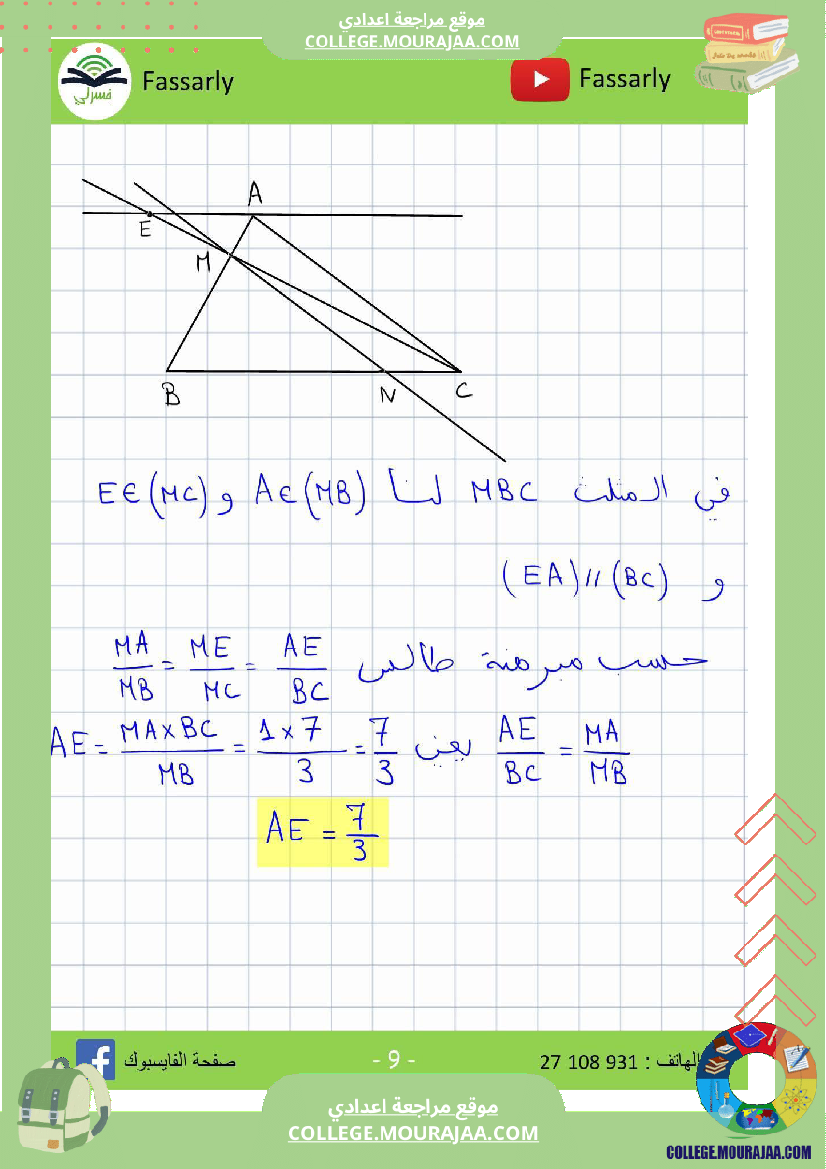 موقع مراجعة اعدادي
COLLEGE.MOURAJAA.COM
Fassarly
فسرلي
Fassarly
A
E
M
B
N
C
في المثلث MBC لنا A∈(MB) و E∈(MC)
و (EA)//(BC)
حسب مبرهنة طالس MA/MB = ME/MC = AE/BC
AE/BC = MA/MB يعني AE = MA×BC/MB = 1×7/3 = 7/3
AE = 7/3
صفحة الفايسبوك
- 9 -
الهاتف : 27 108 931
موقع مراجعة اعدادي
COLLEGE.MOURAJAA.COM
COLLEGE.MOURAJAA.COM